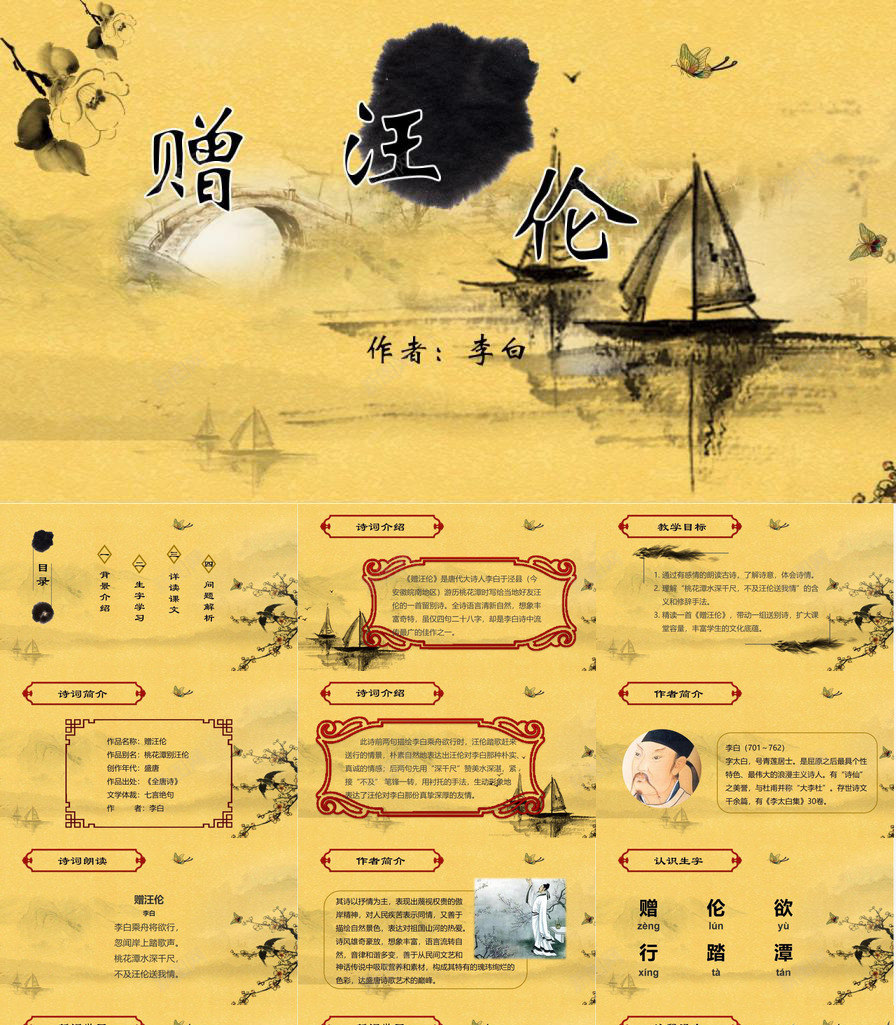 赠汪伦
作者：李白
目录
一 背景介绍
二 生字学习
三 详读课文
四 问题解析
诗词介绍
《赠汪伦》是唐代大诗人李白于泾县（今
安徽皖南地区）游历桃花潭时写给当地好友汪
伦的一首留别诗。全诗语言清新自然，想象丰
富奇特，虽仅四句二十八字，却是李白诗中流
传最广的佳作之一。
教学目标
1. 通过有感情的朗读古诗，了解诗意，体会诗情。
2. 理解“桃花潭水深千尺，不及汪伦送我情”的含
义和修辞手法。
3. 精读一首《赠汪伦》，带动一组送别诗，扩大课
堂容量，丰富学生的文化底蕴。
诗词简介
作品名称：赠汪伦
作品别名：桃花潭别汪伦
创作年代：盛唐
作品出处：《全唐诗》
文学体裁：七言绝句
作　　者：李白
诗词介绍
此诗前两句描绘李白乘舟欲行时，汪伦踏歌赶来
送行的情景，朴素自然地表达出汪伦对李白那种朴实、
真诚的情感；后两句先用“深千尺”赞美水深湛，紧
接“不及”笔锋一转，用衬托的手法，生动形象地
表达了汪伦对李白那份真挚深厚的友情。
作者简介
李白（701～762）
字太白，号青莲居士。是屈原之后最具个性
特色、最伟大的浪漫主义诗人。有“诗仙”
之美誉，与杜甫并称“大李杜”。存世诗文
千余篇，有《李太白集》30卷。
诗词朗读
赠汪伦
李白
李白乘舟将欲行，
忽闻岸上踏歌声。
桃花潭水深千尺，
不及汪伦送我情。
作者简介
其诗以抒情为主，表现出蔑视权贵的傲
岸精神，对人民疾苦表示同情，又善于
描绘自然景色，表达对祖国山河的热爱。
诗风雄奇豪放，想象丰富，语言流转自
然，音律和谐多变，善于从民间文艺和
神话传说中吸取营养和素材，构成其特有的瑰玮绚烂的
色彩，达盛唐诗歌艺术的巅峰。
认识生字
赠 伦 欲
zèng lún yù
行 踏 潭
xíng tà tán